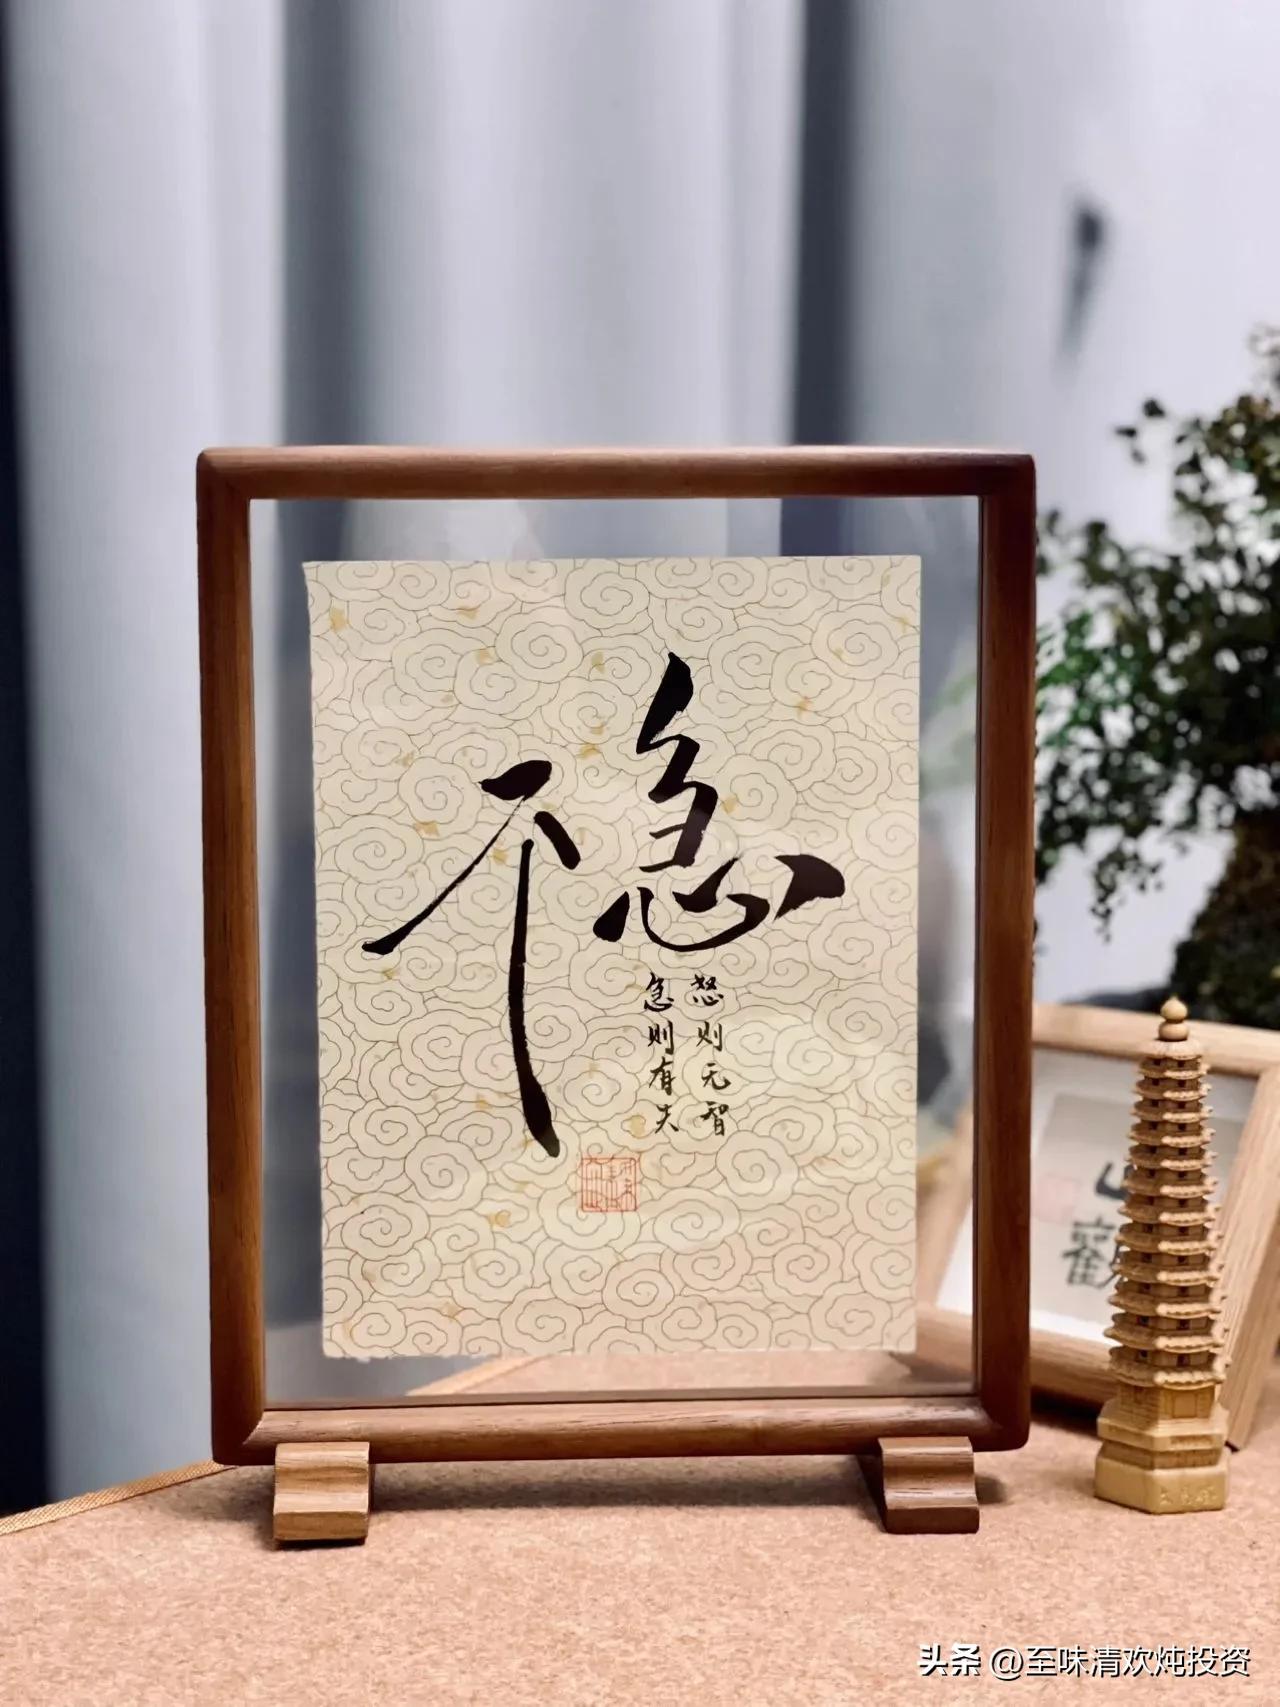 不急
怒则无智
急则有失
观
头条 @至味清欢炖投资